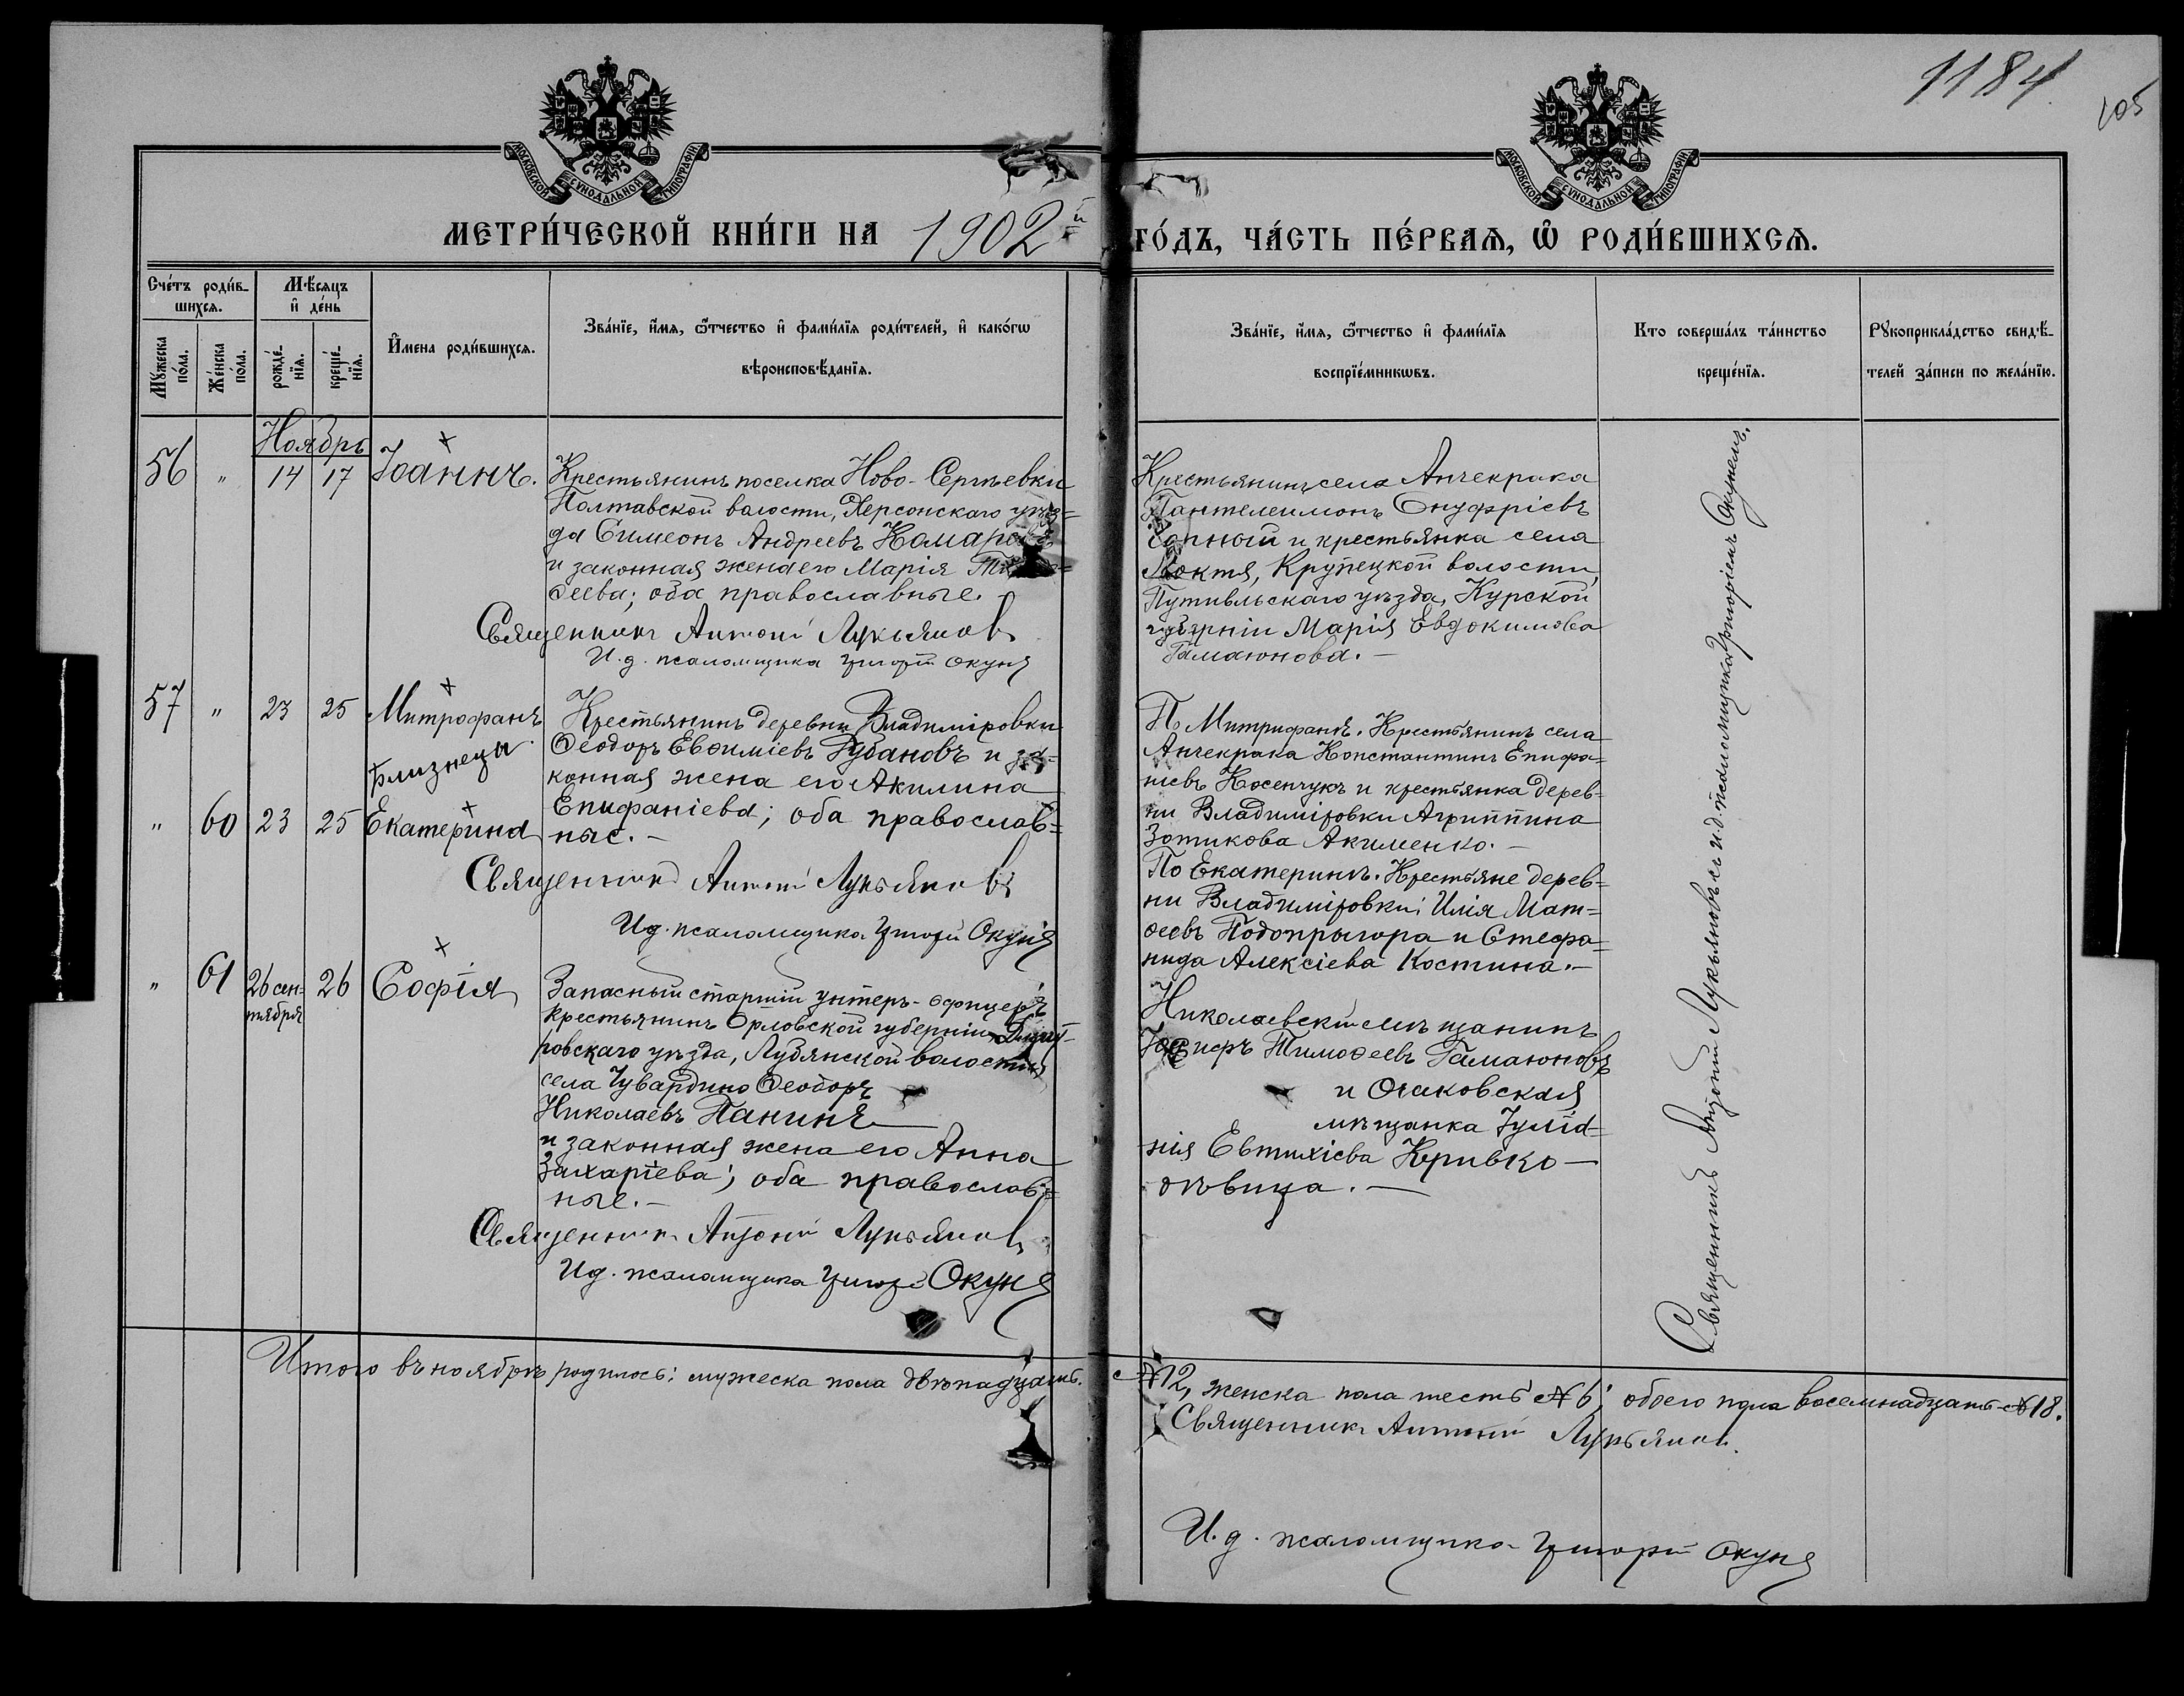 1184
105
МОСКОВСКОЙ СѴНОДАЛЬНОЙ ТИПОГРАФІИ
МОСКОВСКОЙ СѴНОДАЛЬНОЙ ТИПОГРАФІИ
МЕТРИ́ЧЕСКОЙ КНИ́ГИ НА 1902й
ГО́ДЪ, ЧА́СТЬ ПЕ́РВАѦ, Ѡ҆ РОДИ́ВШИХСѦ.
Сче́тъ роди́в-
шихсѧ.
Мꙋ́жеска по́ла.
Же́нска по́ла.
Мѣ́сѧцъ
и҆ де́нь
рожде́-
нїѧ.
креще́-
нїѧ.
И҆́мена роди́вшихсѧ.
Зва́нїе, и҆́мѧ, ѻ҆́тчество и҆ фами́лїѧ роди́телей, и҆ како́гѡ
вѣроисповѣ́данїѧ.
Зва́нїе, и҆́мѧ, ѻ҆́тчество и҆ фами́лїѧ
воспрїе́мникѡвъ.
Кто соверша́лъ та́инство
креще́нїѧ.
Рꙋкоприкла́дство свидѣ́-
телей за́писи по жела́нїю.
Ноябрь
56 " 14 17 Іоаннъ.
Крестьянинъ поселка Ново-Сергѣевки
Полтавской волости, Херсонскаго уѣз=
да Симеонъ Андреевъ Комаровъ
и законная жена его Марія
ѳеева; оба православные.-
Священникъ Антоній Лукьяновъ
И.д. псаломщика Григорій Окунь
Крестьянинъ села Анчекрака
Пантелеимонъ Онуфріевъ
и крестьянка села
Локтя, Крупецкой волости,
Путивльскаго уѣзда, Курской
губерніи Марія Евдокимова
Гамаюнова.-
57 " 23 25 Митрофанъ
близнецы
" 60 23 25 Екатерина
Крестьянинъ деревни Владиміровки
Ѳеодоръ Евѳиміевъ Губановъ и за-
конная жена его Акилина
Епифаніева; оба православ=
ные.-
Священникъ Антоній Лукьяновъ
И.д. псаломщика Григорій Окунь
П. Митрифанѣ. Крестьянинъ села
Анчекрака Константинъ Епифа=
ніевъ Косенчукъ и крестьянка дерев=
ни Владиміровки Агриппина
Зотикова Акименко.-
По Екатеринѣ. Крестьяне дерев=
ни Владиміровки: Илія Мат=
ѳеевъ Подопрыгора и Стефа=
нида Алексіева Костина.-
" 61 26 сен= 26 Софія
тября
Запасный старшій унтеръ-офицеръ
крестьянинъ Орловской губерніи Дмит-
ровскаго уѣзда, Лубянской волости
села Чувардино Ѳеодоръ
Николаевъ Панинъ
и законная жена его Анна
Захаріева; оба православ=
ные.-
Священникъ Антоній Лукьяновъ
И.д. псаломщика Григорій Окунь
Николаевскій мѣщанинъ
Іосифъ Тимоѳеевъ Гамаюновъ
и Очаковская
мѣщанка Іуліа=
нія Евтихіева Кривко-
дѣвица.-
Священникъ Антоній Лукьяновъ и и.д. псаломщика Григоріемъ Окунемъ.
Итого въ ноябрѣ родилось: мужеска пола двѣнадцать.
№12, женска пола шесть №6; обоего пола восемнадцать №18.
Священникъ Антоній Лукьяновъ.
И.д. псаломщика Григорій Окунь